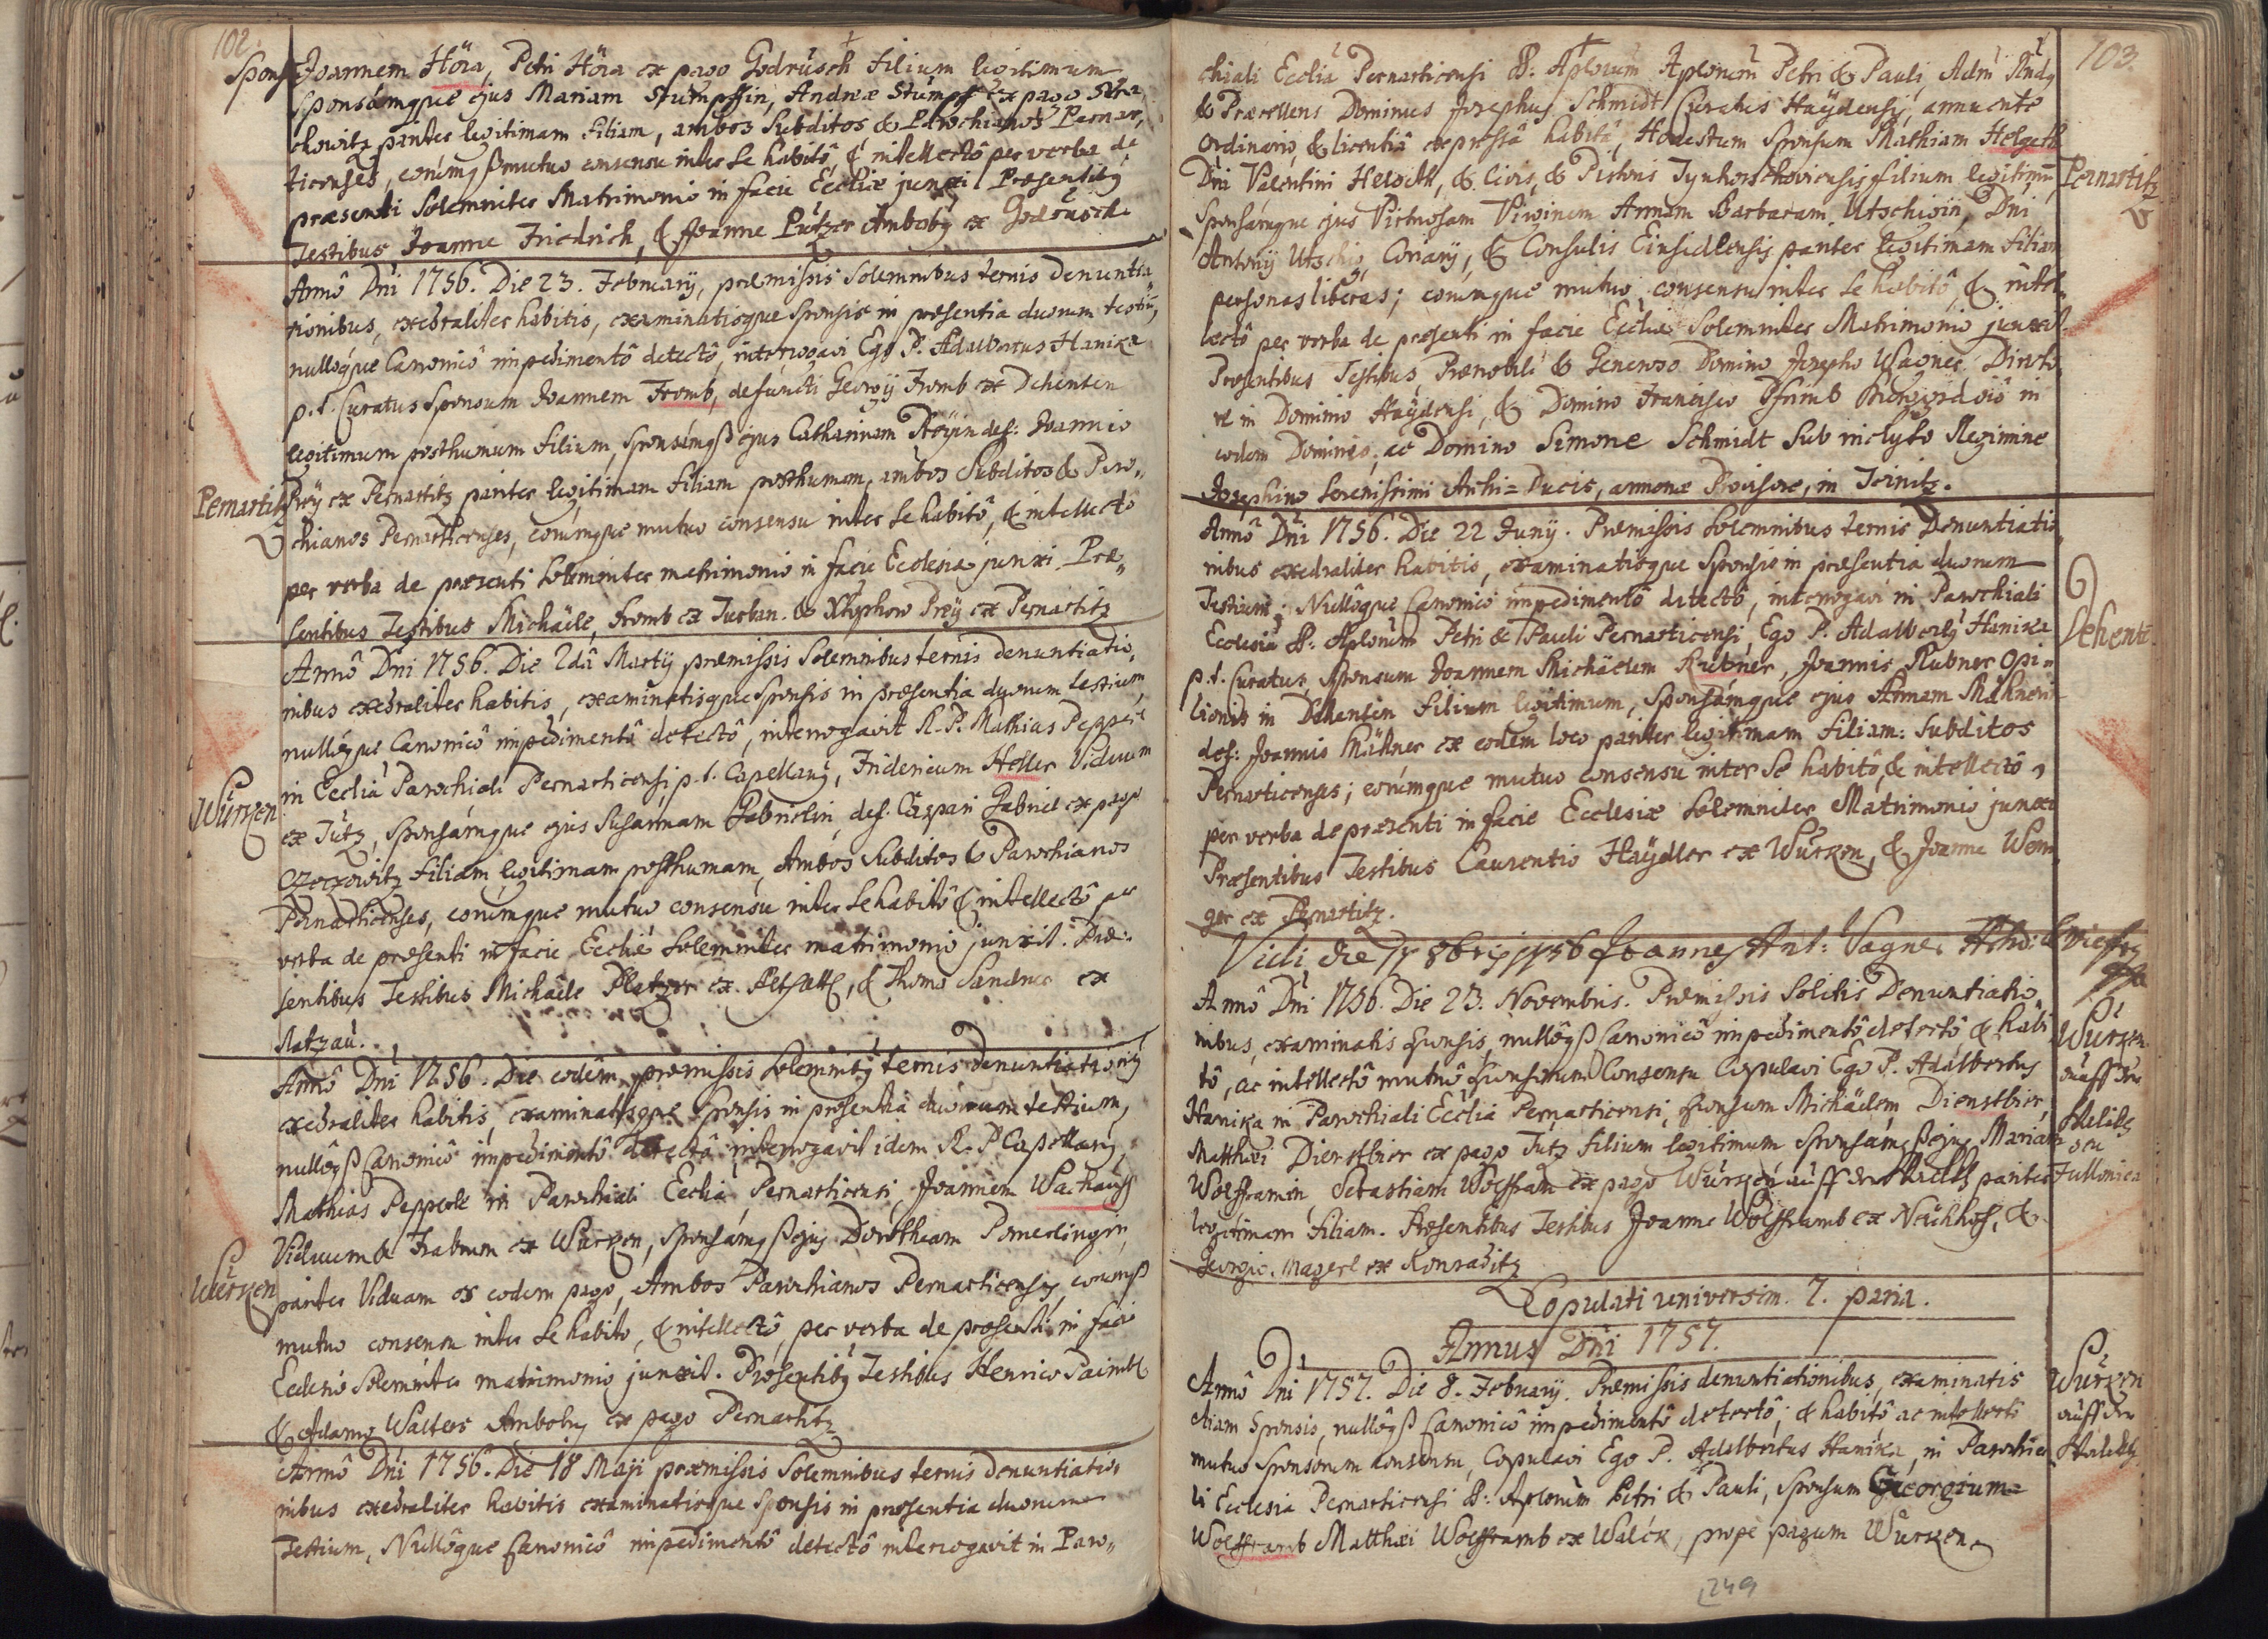 102.
Spons. Joannem Höra, Petri Höra ex pago Godrüsch filium legitimum
Sponsamque ejus Mariam Stumpffin, Andreæ Stumpf ex pago
chowitz pariter legitimam filiam, ambos Subditos & Parochianos Pernar,
ticenses, eorumqß mutuo consensu inter se habitô, & intellectô per verba de
præsenti Solemniter Matrimonio in facie Eccliæ junxi Præsentibg
Testibus Joanne Friedrich, & Joanne Pützer Ambobg ex Godrüsch
Annô Dni 1756. Die 23. Februarij, præmissis Solemnibus ternis denuntia„
tionibus, exedraliter habitis, examinatisque Sponsis in præsentia duorum testiu,
nullôque Canonicô impedimentô detectô, interrogavi Ego P. Adalbertus Hanika
p.t. Curatus Sponsum Joannem Fromb, defuncti Georgij Fromb ex Dehenten
legitimum posthumum filium, Sponsamqß ejus Catharinam Preÿin def: Joannis
Pernartitz
Preÿ ex Pernartitz pariter legitimam filiam posthumam, ambos Subditos & Paro„
chianos Pernarticenses, eorumque mutuo consensu inter se habitô, & intellectô
per verba de præsenti Solemniter matrimonio in facie Ecclesiæ junxi. Præ„
sentibus Testibus Michaële Fromb ex Turban. & Xtophoro Preÿ ex Pernartitz
Annô Dni 1756. Die 2dâ Martij præmissis Solemnibus ternis denuntiatio,
nibus exedraliter habitis, examinatisque Sponsis in præsentia duorum testium,
nullôque Canonicô impedimentô detectô, interrogavit R. P. Mathias Pepperl
in Ecclia Parochiali Pernarticensi p.t. Capellang, Fridericum Heller Viduum
Würken
ex Tutz, Sponsamque ejus Susannam Gabrielin, def. Caspari Gabriel ex pago
filiam legitimam posthumam, Ambos Subditos & Parochianos
Pernarticenses, eorumque mutuo consensu inter se habitô & intellectô per
verba de præsenti in facie Eccliæ Solemniter matrimonio junxit. Præ„
sentibus Testibus Michaële Platzer ex & Thoma Sandner ex
Ratzau.
Annô Dni 1756. Die eodem, præmissis Solemnibg ternis denuntiationibg
exedraliter habitis, examinatisque Sponsis in præsentia duorum testium,
nullôqß Canonicô impedimentô detectô interrogavit idem R. P. Capellang
Mathias Pepperl in Parochiali Ecclia Pernarticensi, Joannem Wachauff
Viduum & Fabrum ex Würken, Sponsamqß ejg Dorotheam Pomerlingin
Würken
pariter Viduam ex eodem pago, Ambos Parochianos Pernarticensg, eorumqß
mutuo consensu inter se habito, & intellectô, per verba de præsenti in facie
Ecclesiæ Solemniter matrimonio junxit. Præsentibg Testibus Henrico Paimbl
& Adamo Walters Ambobg ex pago Pernartitz
Annô Dni 1756. Die 18 Maji præmissis Solemnibus ternis denuntiatio„
nibus exedraliter habitis examinatisque Sponsis in præsentia duorum
Testium, Nullôque Canonicô impedimentô detectô interrogavit in Paro„
103.
chiali Ecclia Pernarticensi B: Aplorum Petri & Pauli, Adm Rndg
& Præcellens Dominus Josephus Schmidt Curatus Haÿdensis, annuente
Ordinario, & licentiâ expressâ habitâ, Honestum Sponsum Mathiam Helgeth
Dni Valentini Helgeth, & Civis, & Pistoris filium legitimu
Pernartitz
Sponsamque ejus Virtuosam Virginem Annam Barbaram Utschigin, Dni
Antonij Utschig, Coriarij, & Consulis Einsidlensis pariter legitimam filiam
personas liberas; eorumque mutuo consensu inter se habitô, & intel„
lectô per verba de præsenti in facie Eccliæ Solemniter Matrimonio junxit.
Præsentibus Testibus, Prænobili & Generoso Domino Josepho Wagner Directo„
re in Dominio Haÿdensi, & Domino Francisco in
eodem Dominio, ac Domino Simone Schmidt Sub inclyto Regimine
Josephino Serenissimi Archi=Ducis, annonæ Provisore, in
Annô Dni 1756. Die 22 Junij. Præmissis Solemnibus ternis Denuntiatio„
nibus exedraliter habitis, examinatisque Sponsis in præsentia duorum
Testium; Nullôque Canonicô impedimentô detectô, interrogavi in Parochiali
Ecclesia B: Aplorum Petri & Pauli Pernarticensi, Ego P. Adalbertg Hanika
Dehenten
p.t. Curatus, Sponsum Joannem Michäelem Rubner, Joannis Rubner Opi=
lionis in Dehenten filium legitimum, Sponsamque ejus Annam Mähnerin
def: Joannis Mähner ex eodem loco pariter legitimam filiam: Subditos
Pernarticenses; eorumque mutuo consensu inter se habitô, & intellectô,
per verba de præsenti in facie Ecclesiæ Solemniter Matrimonio junxi
Præsentibus Testibus Laurentio Haÿdler ex Würken, & Joanne Wen„
ger ex Pernartitz.
Vidi die 8bris 1756 Joannes Ant: Vagner
Annô Dni 1756. Die 23. Novembris. Præmissis Solitis Denuntiatio„
nibus, examinatis Sponsis, nullôqß Canonicô impedimentô detectô, & habi„
tô, ac intellectô mutuô Sponsorum Consensu Copulavi Ego P. Adalbertus
Hanika in Parochiali Ecclia Pernarticensi, Sponsum Michäelem Dienstbier,
Matthæi Dienstbier ex pago Tutz filium legitimum Sponsamqß ejus Mariam
Wolfframin, Sebastiani Wolffram ex pago Würken auff der pariter
legitimam filiam. Præsentibus Testibus Joanne Wolfframb ex Neühhof, &
Georgio Magerl ex Konraditz
Würken
auff der
seu
Fullonica
Copulati universim. 7. paria.
Annus Dni 1757.
Annô Dni 1757. Die 8. Februarij. Præmissis denuntiationibus, examinatis
etiam Sponsis, nullôqß Canonicô impedimentô detectô, & habitô ac intellectô
mutuo Sponsorum consensu, Copulavi Ego P. Adalbertus Hanika, in Parochia„
li Ecclesia Pernarticensi B: Aplorum Petri & Pauli, Sponsum Georgium
Wolfframb Matthæi Wolfframb ex Walck, prope pagum Würken
Würken
auff der
249